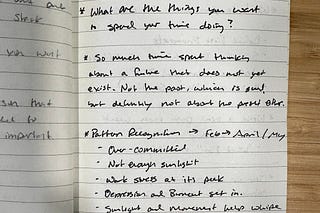 and
Steak
* What are the things you want
to spend your time doing?
van want
* So much time spent thinking
about a future that does not yet
exist. Not the past, which is good,
but definitely not about the present
that
to
important
* Pattern Recognition → Feb → April / May
- Over-committed
- Not enough sunlight
- Work stress at its peak
- Depression and Burnout set in.
- Sunlight and movement help